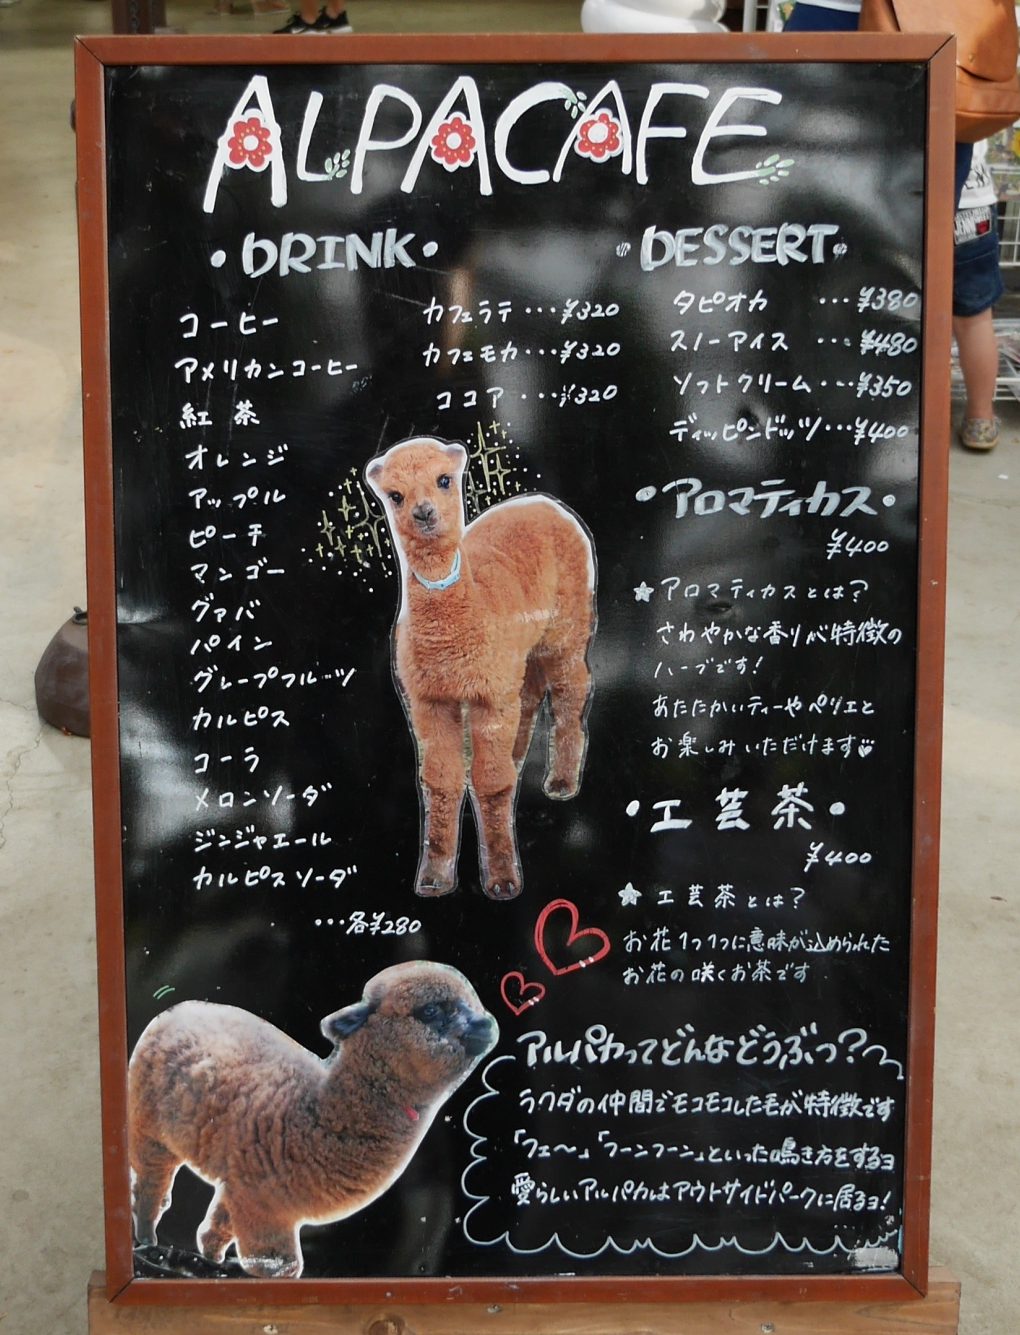 ALPACAFE
・DRINK・
コーヒー
アメリカンコーヒー
紅茶
オレンジ
アップル
ピーチ
マンゴー
グァバ
パイン
グレープフルーツ
カルピス
コーラ
メロンソーダ
ジンジャエール
カルピスソーダ
…各¥280
カフェラテ…¥320
カフェモカ…¥320
ココア…¥320
DESSERT
タピオカ…¥380
スノーアイス…¥480
ソフトクリーム…¥350
ディッピンドッツ…¥400
・アロマティカス・
¥400
★アロマティカスとは?
さわやかな香りが特徴の
ハーブです!
あたたかいティーやペリエと
お楽しみいただけます♥
・工芸茶・
¥400
★工芸茶とは?
お花1つ1つに意味が込められた
お花の咲くお茶です
アルパカってどんなどうぶつ?
ラクダの仲間でモコモコした毛が特徴です
「フェ〜」「フーンフーン」といった鳴き方をするヨ
愛らしいアルパカはアウトサイドパークに居るヨ!